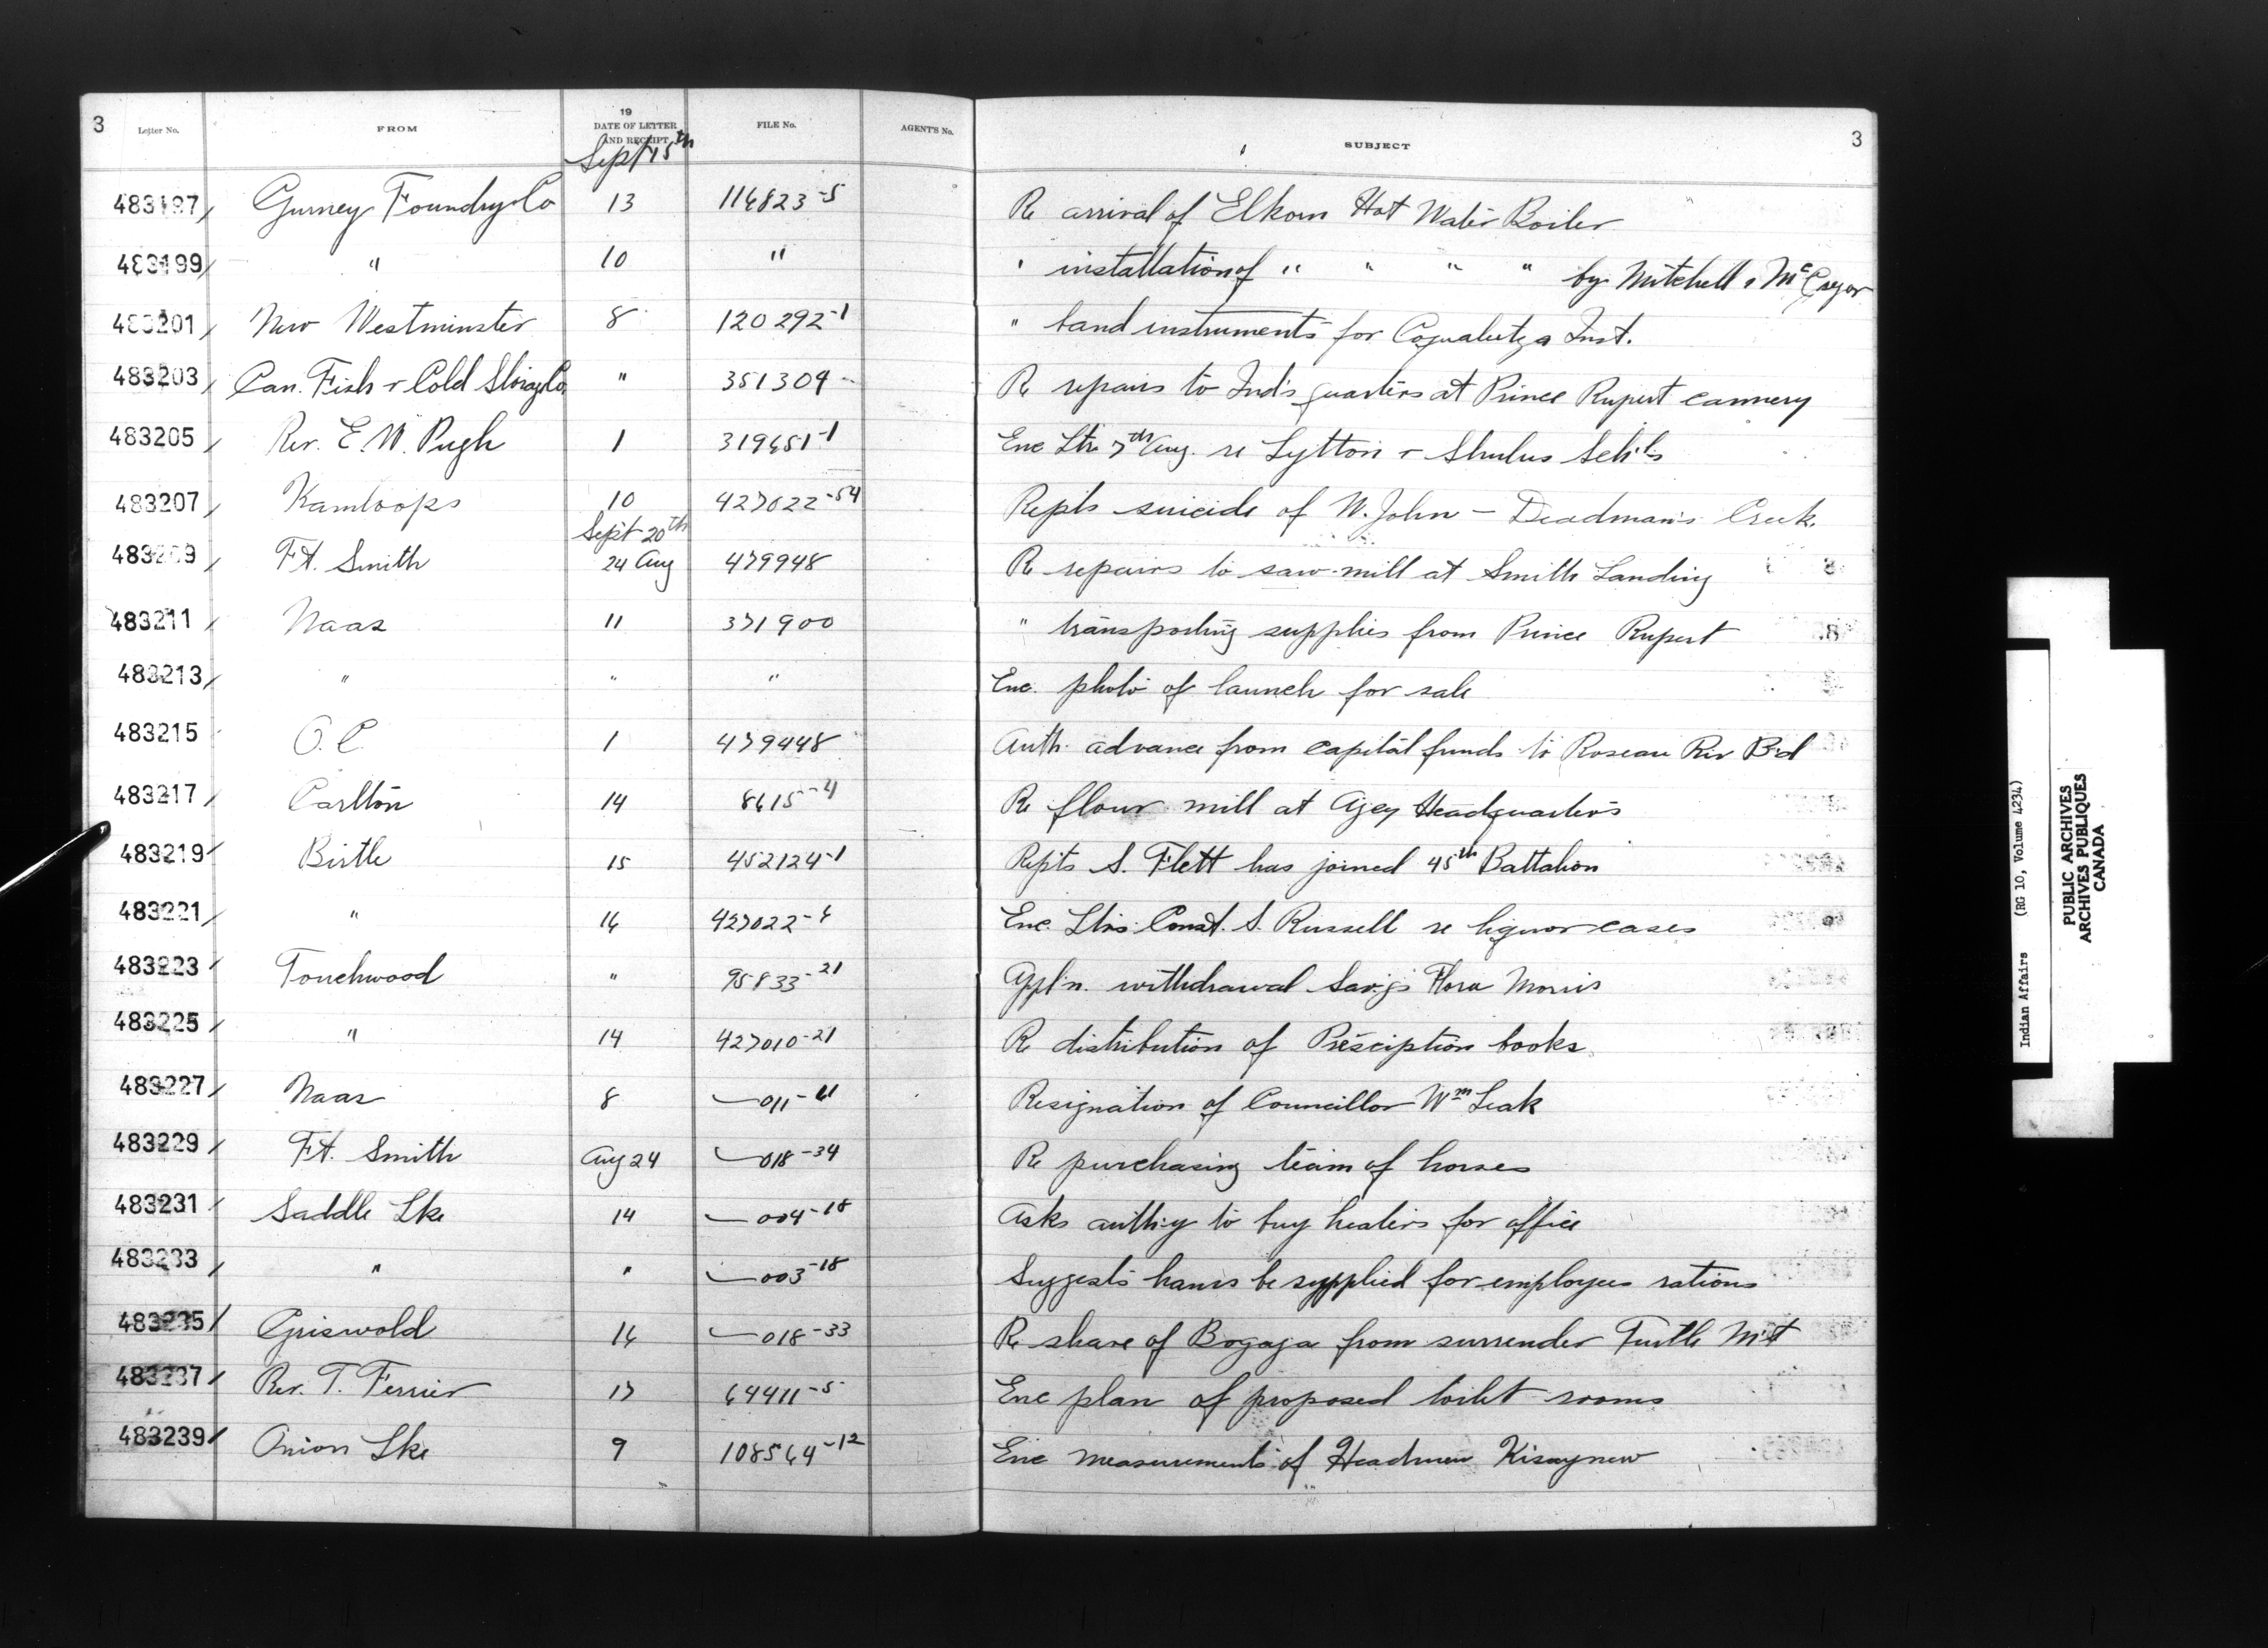 3 Letter No. FROM 19 DATE OF LETTER AND RECEIPT FILE No. AGENT'S No. SUBJECT 3
Sept 15th
483197 Gurney Foundry Co 13 116823-5 Re arrival of Elkorn Hot Water Boiler
483199 " 10 " " installation of " " " " by Mitchell & McGregor
483201 New Westminster 8 120292-1 " band instruments for Coqualeetza Inst.
483203 Can. Fish & Cold Storage Co. " 351304 Re repairs to Ind's quarters at Prince Rupert cannery
483205 Rev. E. W. Pugh 1 319451-1 Enc Ltr 7th Aug. re Lytton & Shulus Sch'ls
483207 Kamloops 10 427022-54 Repts suicide of W. John - Deadman's Creek.
Sept 20th
483209 Ft. Smith 24 Aug 479948 Re repairs to saw-mill at Smith Landing
483211 Naas 11 371900 " transporting supplies from Prince Rupert
483213 " " " Enc. photo of launch for sale
483215 O.C. 1 479448 Auth. advance from capital funds to Roseau Riv B'd
483217 Carlton 14 8615-4 Re flour mill at Agcy Headquarters
483219 Birtle 15 452124-1 Repts S. Flett has joined 45th Battalion
483221 " 16 427022-6 Enc. Ltrs Const. S. Russell re liquor cases
483223 Touchwood " 95833-21 Appl'n. withdrawal Sav.gs Flora Morris
483225 " 14 427010-21 Re distribution of Presciption books
483227 Naas 8 — 011-61 Resignation of Councillor Wm Leak
483229 Ft. Smith Aug 24 — 018-34 Re purchasing team of horses
483231 Saddle Lke 14 — 004-18 Asks auth:y to buy heaters for office
483233 " " — 003-18 Suggests hams be supplied for employees rations
483235 Griswold 16 — 018-33 Re share of Bogaga from surrender Turtle M't
483237 Rev. T. Ferrier 17 64411-5 Enc plan of proposed toilet rooms
483239 Onion Lke 9 108564-12 Enc measurements of Headmen Kisaynew
Indian Affairs (RG 10, Volume 4234)
PUBLIC ARCHIVES
ARCHIVES PUBLIQUES
CANADA